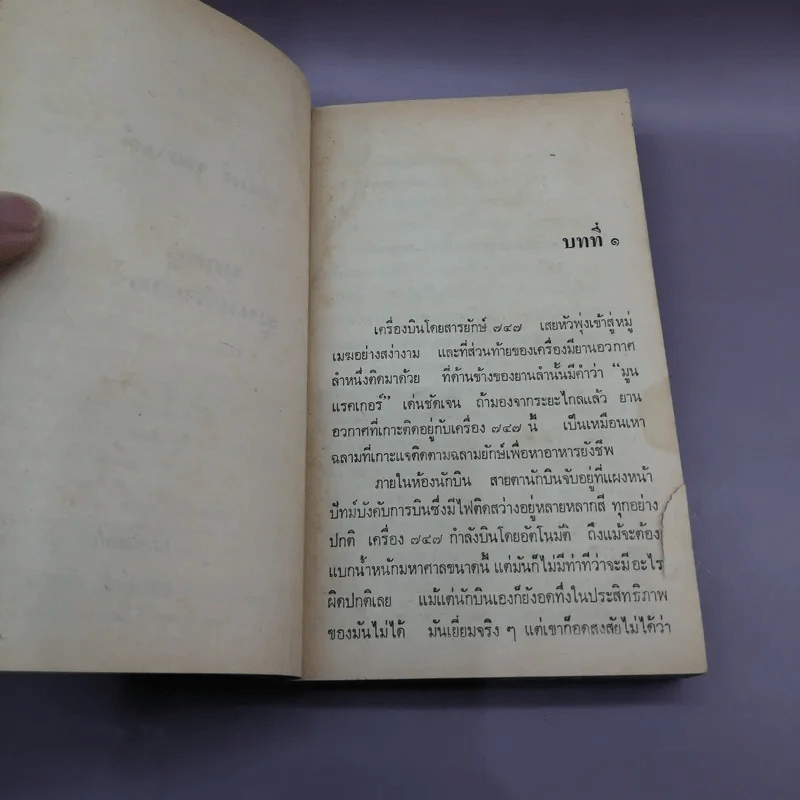 บทที่ ๑
เครื่องบินโดยสารยักษ์ ๗๔๗ เสยหัวพุ่งเข้าสู่หมู่
เมฆอย่างสง่างาม และที่ส่วนท้ายของเครื่องมียานอวกาศ
ลำหนึ่งติดมาด้วย ที่ด้านข้างของยานลำนั้นมีคำว่า “มูน
แรคเกอร์” เด่นชัดเจน ถ้ามองจากระยะไกลแล้ว ยาน
อวกาศที่เกาะติดอยู่กับเครื่อง ๗๔๗ นี้ เป็นเหมือนเหา
ฉลามที่เกาะแจติดตามฉลามยักษ์เพื่อหาอาหารยังชีพ
ภายในห้องนักบิน สายตานักบินจับอยู่ที่แผงหน้า
ปัทม์บังคับการบินซึ่งมีไฟติดสว่างอยู่หลายหลากสี ทุกอย่าง
ปกติ เครื่อง ๗๔๗ กำลังบินโดยอัตโนมัติ ถึงแม้จะต้อง
แบกน้ำหนักมหาศาลขนาดนี้ แต่มันก็ไม่มีท่าทีว่าจะมีอะไร
ผิดปกติเลย แม้แต่นักบินเองก็ยังอดทึ่งในประสิทธิภาพ
ของมันไม่ได้ มันเยี่ยมจริง ๆ แต่เขาก็อดสงสัยไม่ได้ว่า